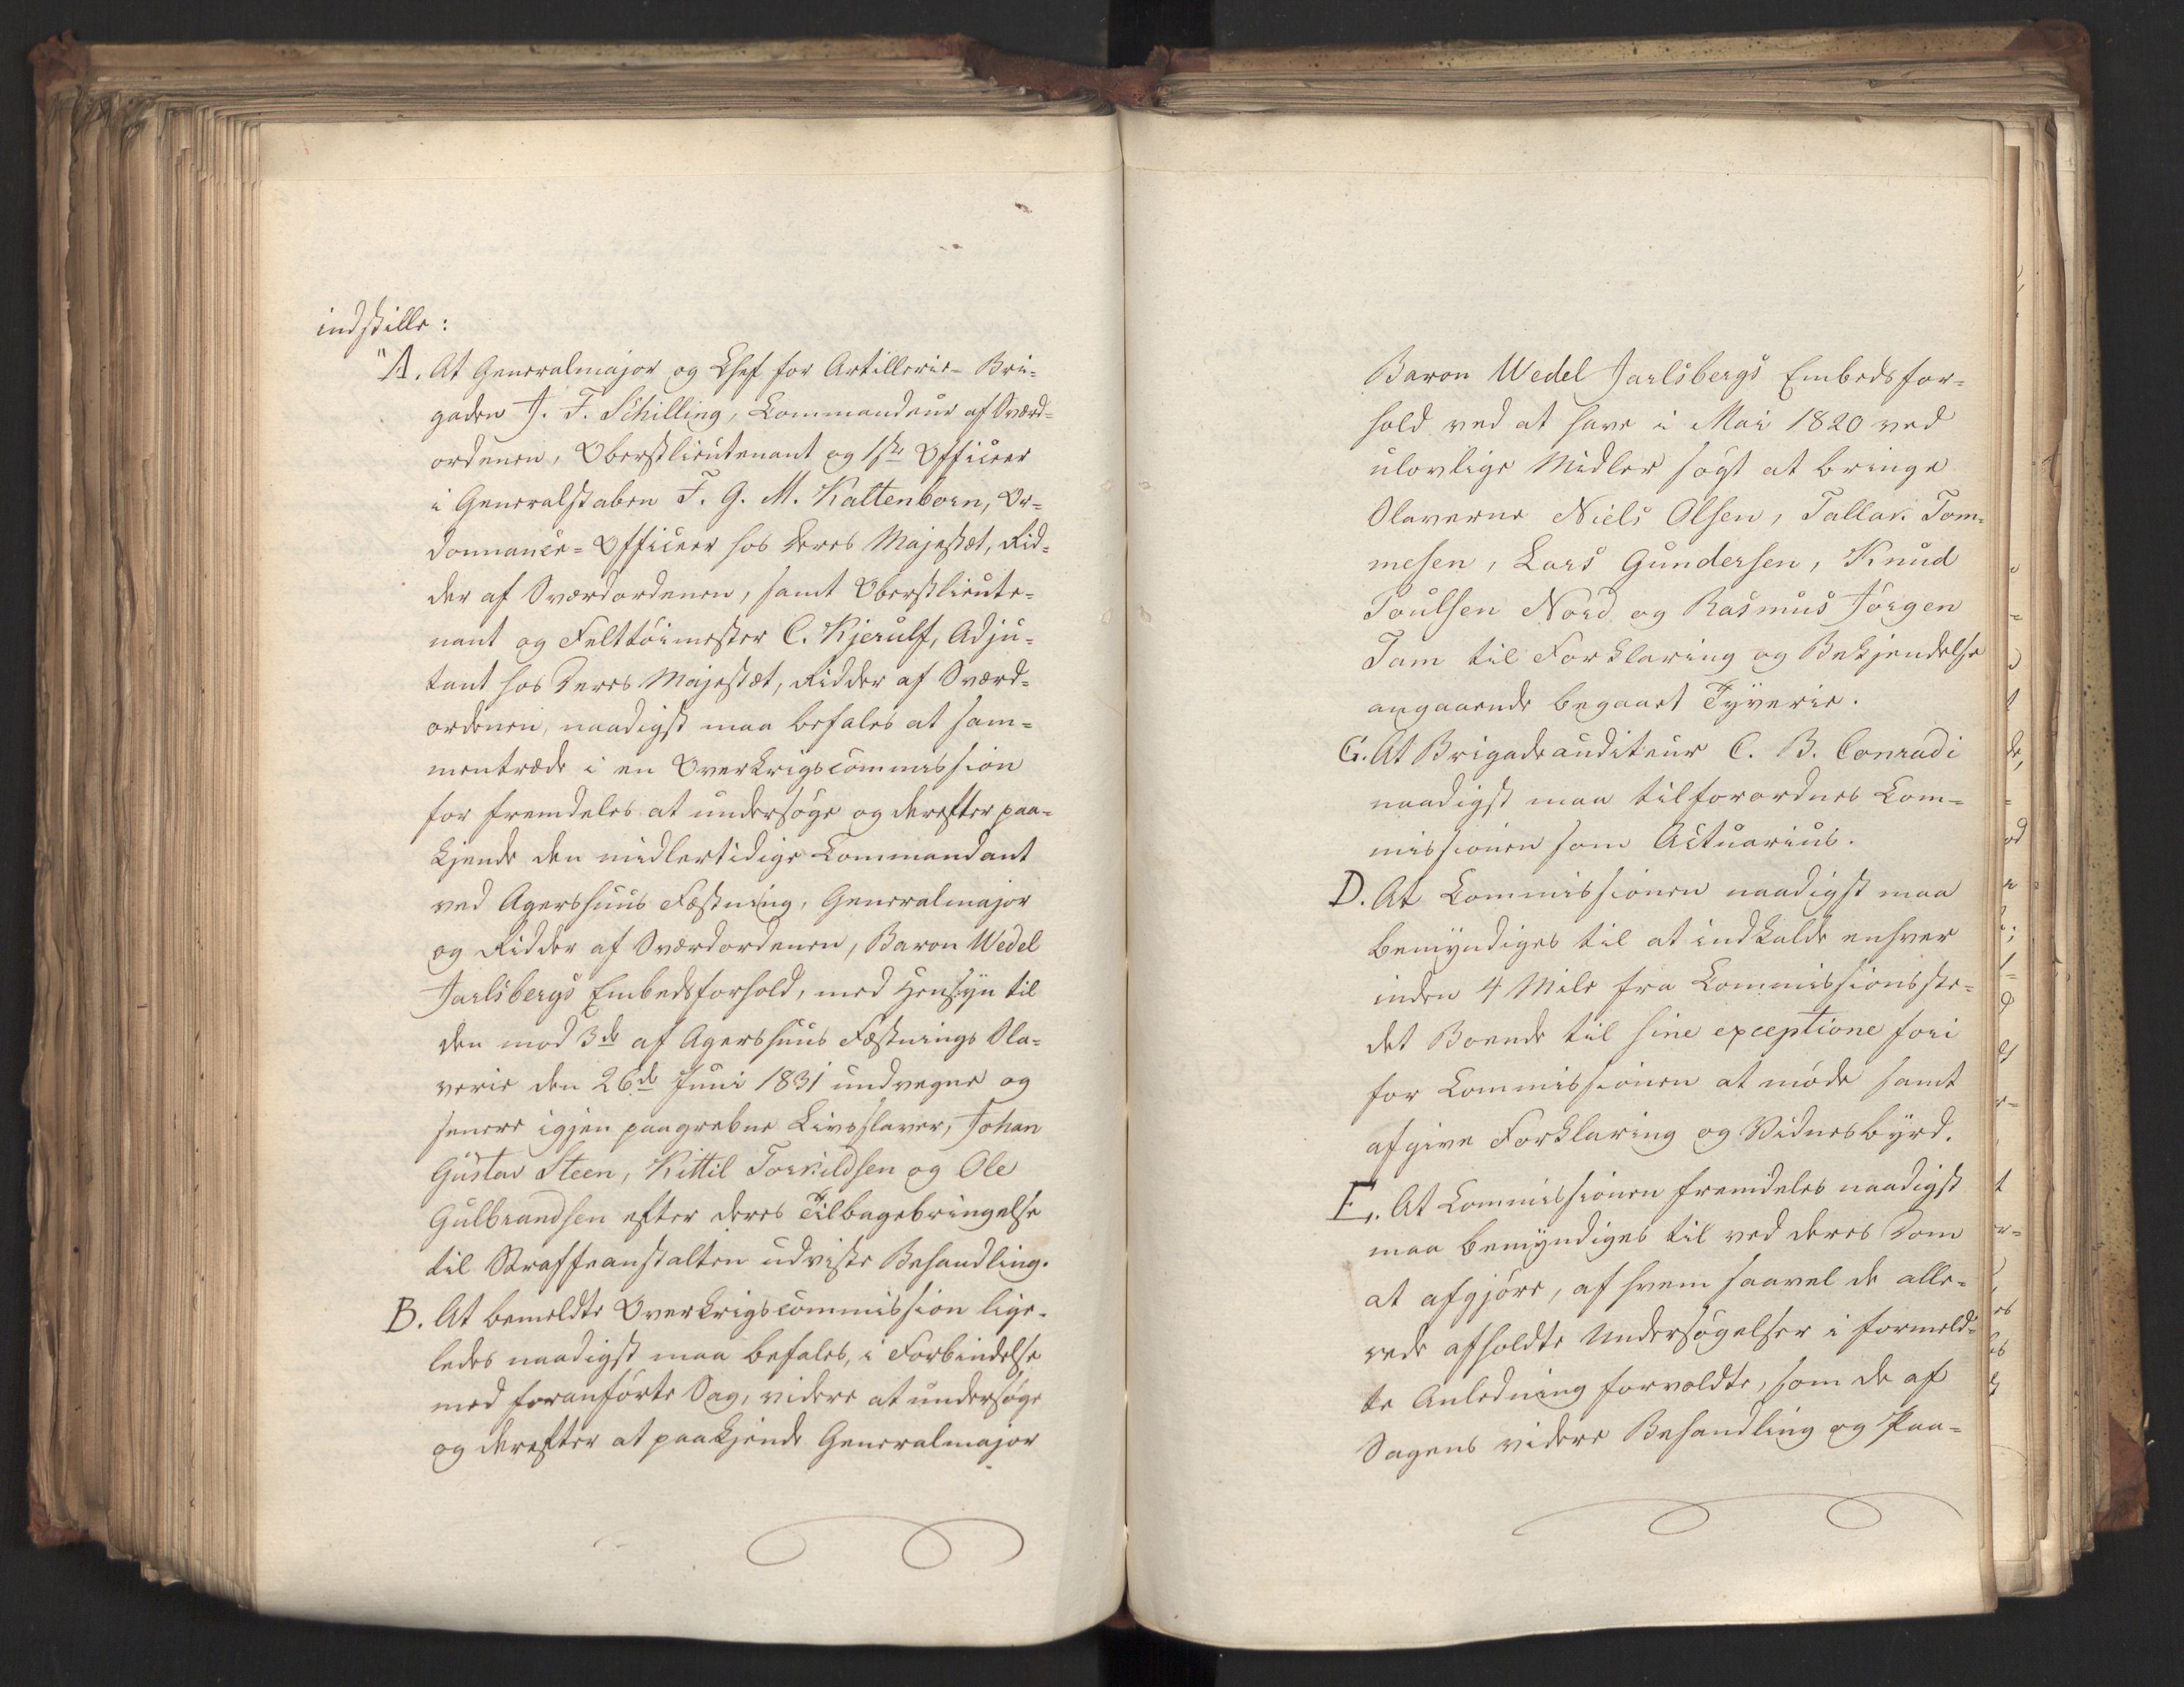 indstille:
"A. At Generalmajor og Chef for Artillerie-Bri-
gaden J. F. Schilling, Commandeur af Sværd-
ordenen, Oberstlieutenant og 1ste Officeer
i Generalstaben F. G. M. Kaltenborn, Or-
donnance-Officeer hos Deres Majestæt, Rid-
der af Sværdordenen, samt Oberstlieute-
nant og Felttöimester C. Kjerulf, Adju-
tant hos Deres Majestæt, Ridder af Sværd-
ordenen, naadigst maa befales at sam-
mentræde i en Overkrigscommission
for fremdeles at undersöge og derefter paa-
kjende den midlertidige Commandant
ved Agershuus Fæstning, Generalmajor
og Ridder af Sværdordenen, Baron Wedel
Jarlsbergs Embedsforhold, med Hensyn til
den mod 3de af Agershuus Fæstnings Sla-
verie den 26de Juni 1831 undvegne og
senere igjen paagrebne Livsslaver, Johan
Gustav Steen, Kittil Torkildsen og Ole
Gulbrandsen efter deres Tilbagebringelse
til Straffeanstalten udviste Behandling.
B. At bemeldte Overkrigscommission lige-
ledes naadigst maa befales, i Forbindelse
med foranförte Sag, videre at undersöge
og derefter at paakjende Generalmajor
Baron Wedel Jarlsbergs Embedsfor-
hold ved at have i Mai 1820 ved
ulovlige Midler sögt at bringe
Slaverne Niels Olsen, Tallak Tom-
mesen, Lars Gundersen, Knud
Poulsen Nord og Rasmus Jörgen
Tam til Forklaring og Bekjendelse
angaaende begaaet Tyverie.
C. At Brigadeauditeur C. B. Conradi
naadigst maa tilforordnes Com-
missionen som Actuarius.
D. At Commissionen naadigst maa
bemyndiges til at indkalde enhver
inden 4 Mile fra Commissionsste-
det Boende til sine exceptione fori
for Commissionen at möde samt
afgive Forklaring og Vidnesbyrd.
E. At Commissionen fremdeles naadigst
maa bemyndiges til ved deres Dom
at afgjöre, af hvem saavel de alle-
rede afholdte Undersögelser i formeld-
te Anledning forvoldte, som de af
Sagens videre Behandling og Paa-